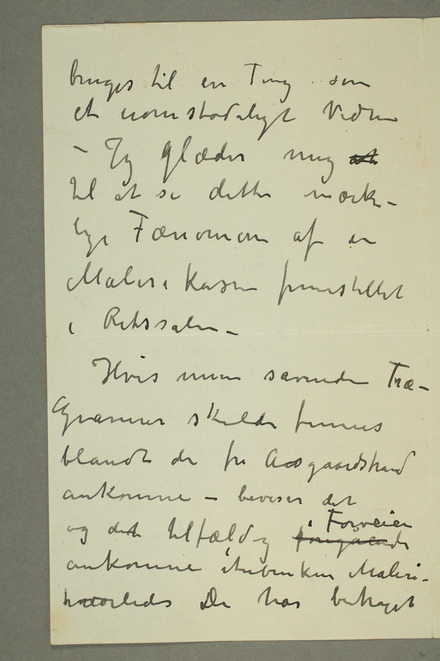 bruges til en Ting som
et uomstødeligt Vidne
– Jeg glæder mig
til at se dette mærke-
lige Fænomen af en
Maleri Kasse fremstillet
i Retssalen –
Hvis mine savnede Træ-
Gravurer skulde finnes
blandt de fra Aasgaardstrand
ankomne – beviser det
og det tilfældig i Forveien foregaaende
ankomne Maleri-
hvorledes De har behaget